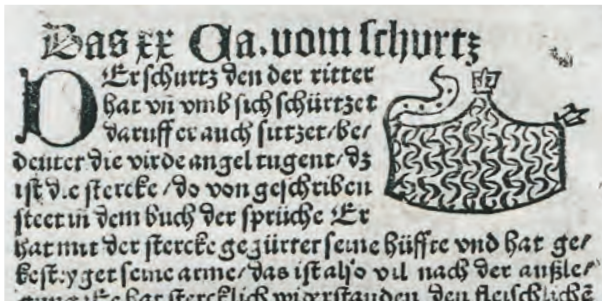 Das xx Ca. vom schurtz
DEr schurtz den der ritter
hat vñ vmb sich schürtzet
daruff er auch sitzet / be/
deutet die vierde angel tugent / dz
ist die stercke / do von geschriben
steet in dem buch der sprüche Er
hat mit der stercke gegürtet seine hüffte vnd hat ge/
festyget seine arme / das ist also vil nach der außle/
gung Er hat stercklich widerstanden den fleischlichē